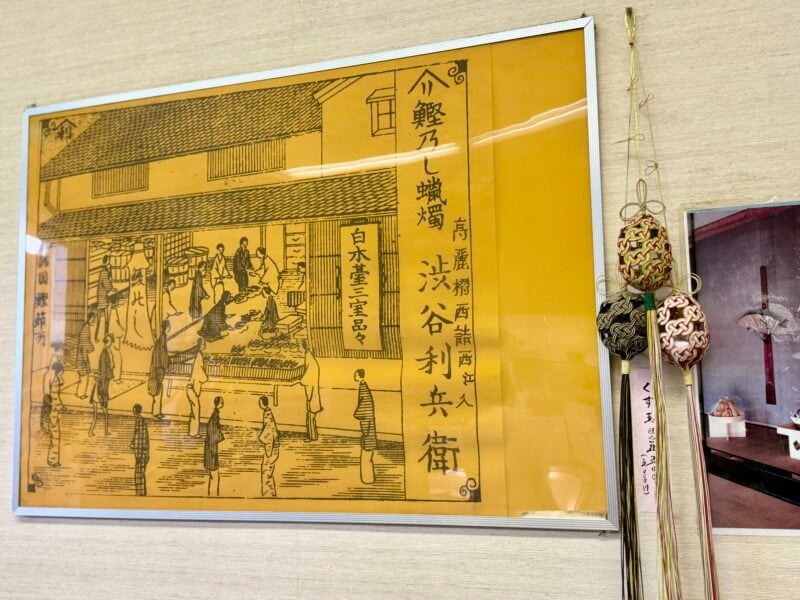 鰹乃し蠟燭
高麗橋西詰西江入
渋谷利兵衛
白木臺三宝品々
利
くす玉